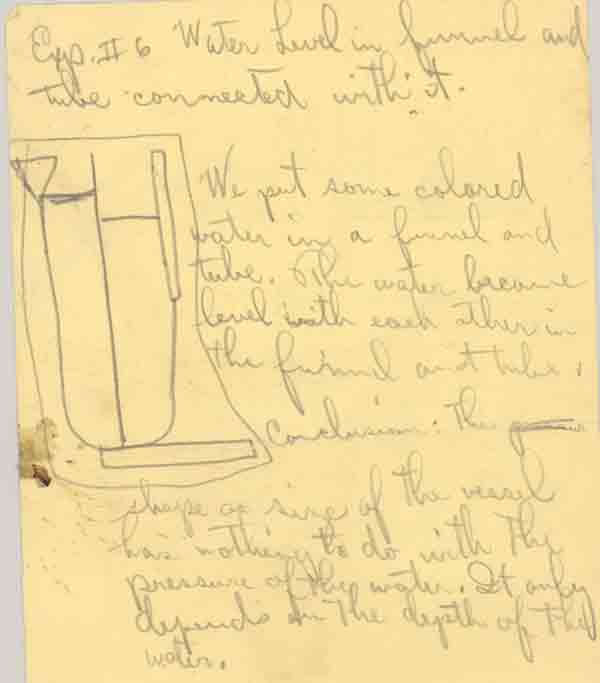 Exp. # 6 Water Level in funnel and
tube connected with it.
We put some colored
water in a funnel and
tube. The water became
level with each other in
the funnel and tube.
Conclusion: The
shape or size of the vessel
has nothing to do with the
pressure of the water. It only
depends on the depth of the
water.